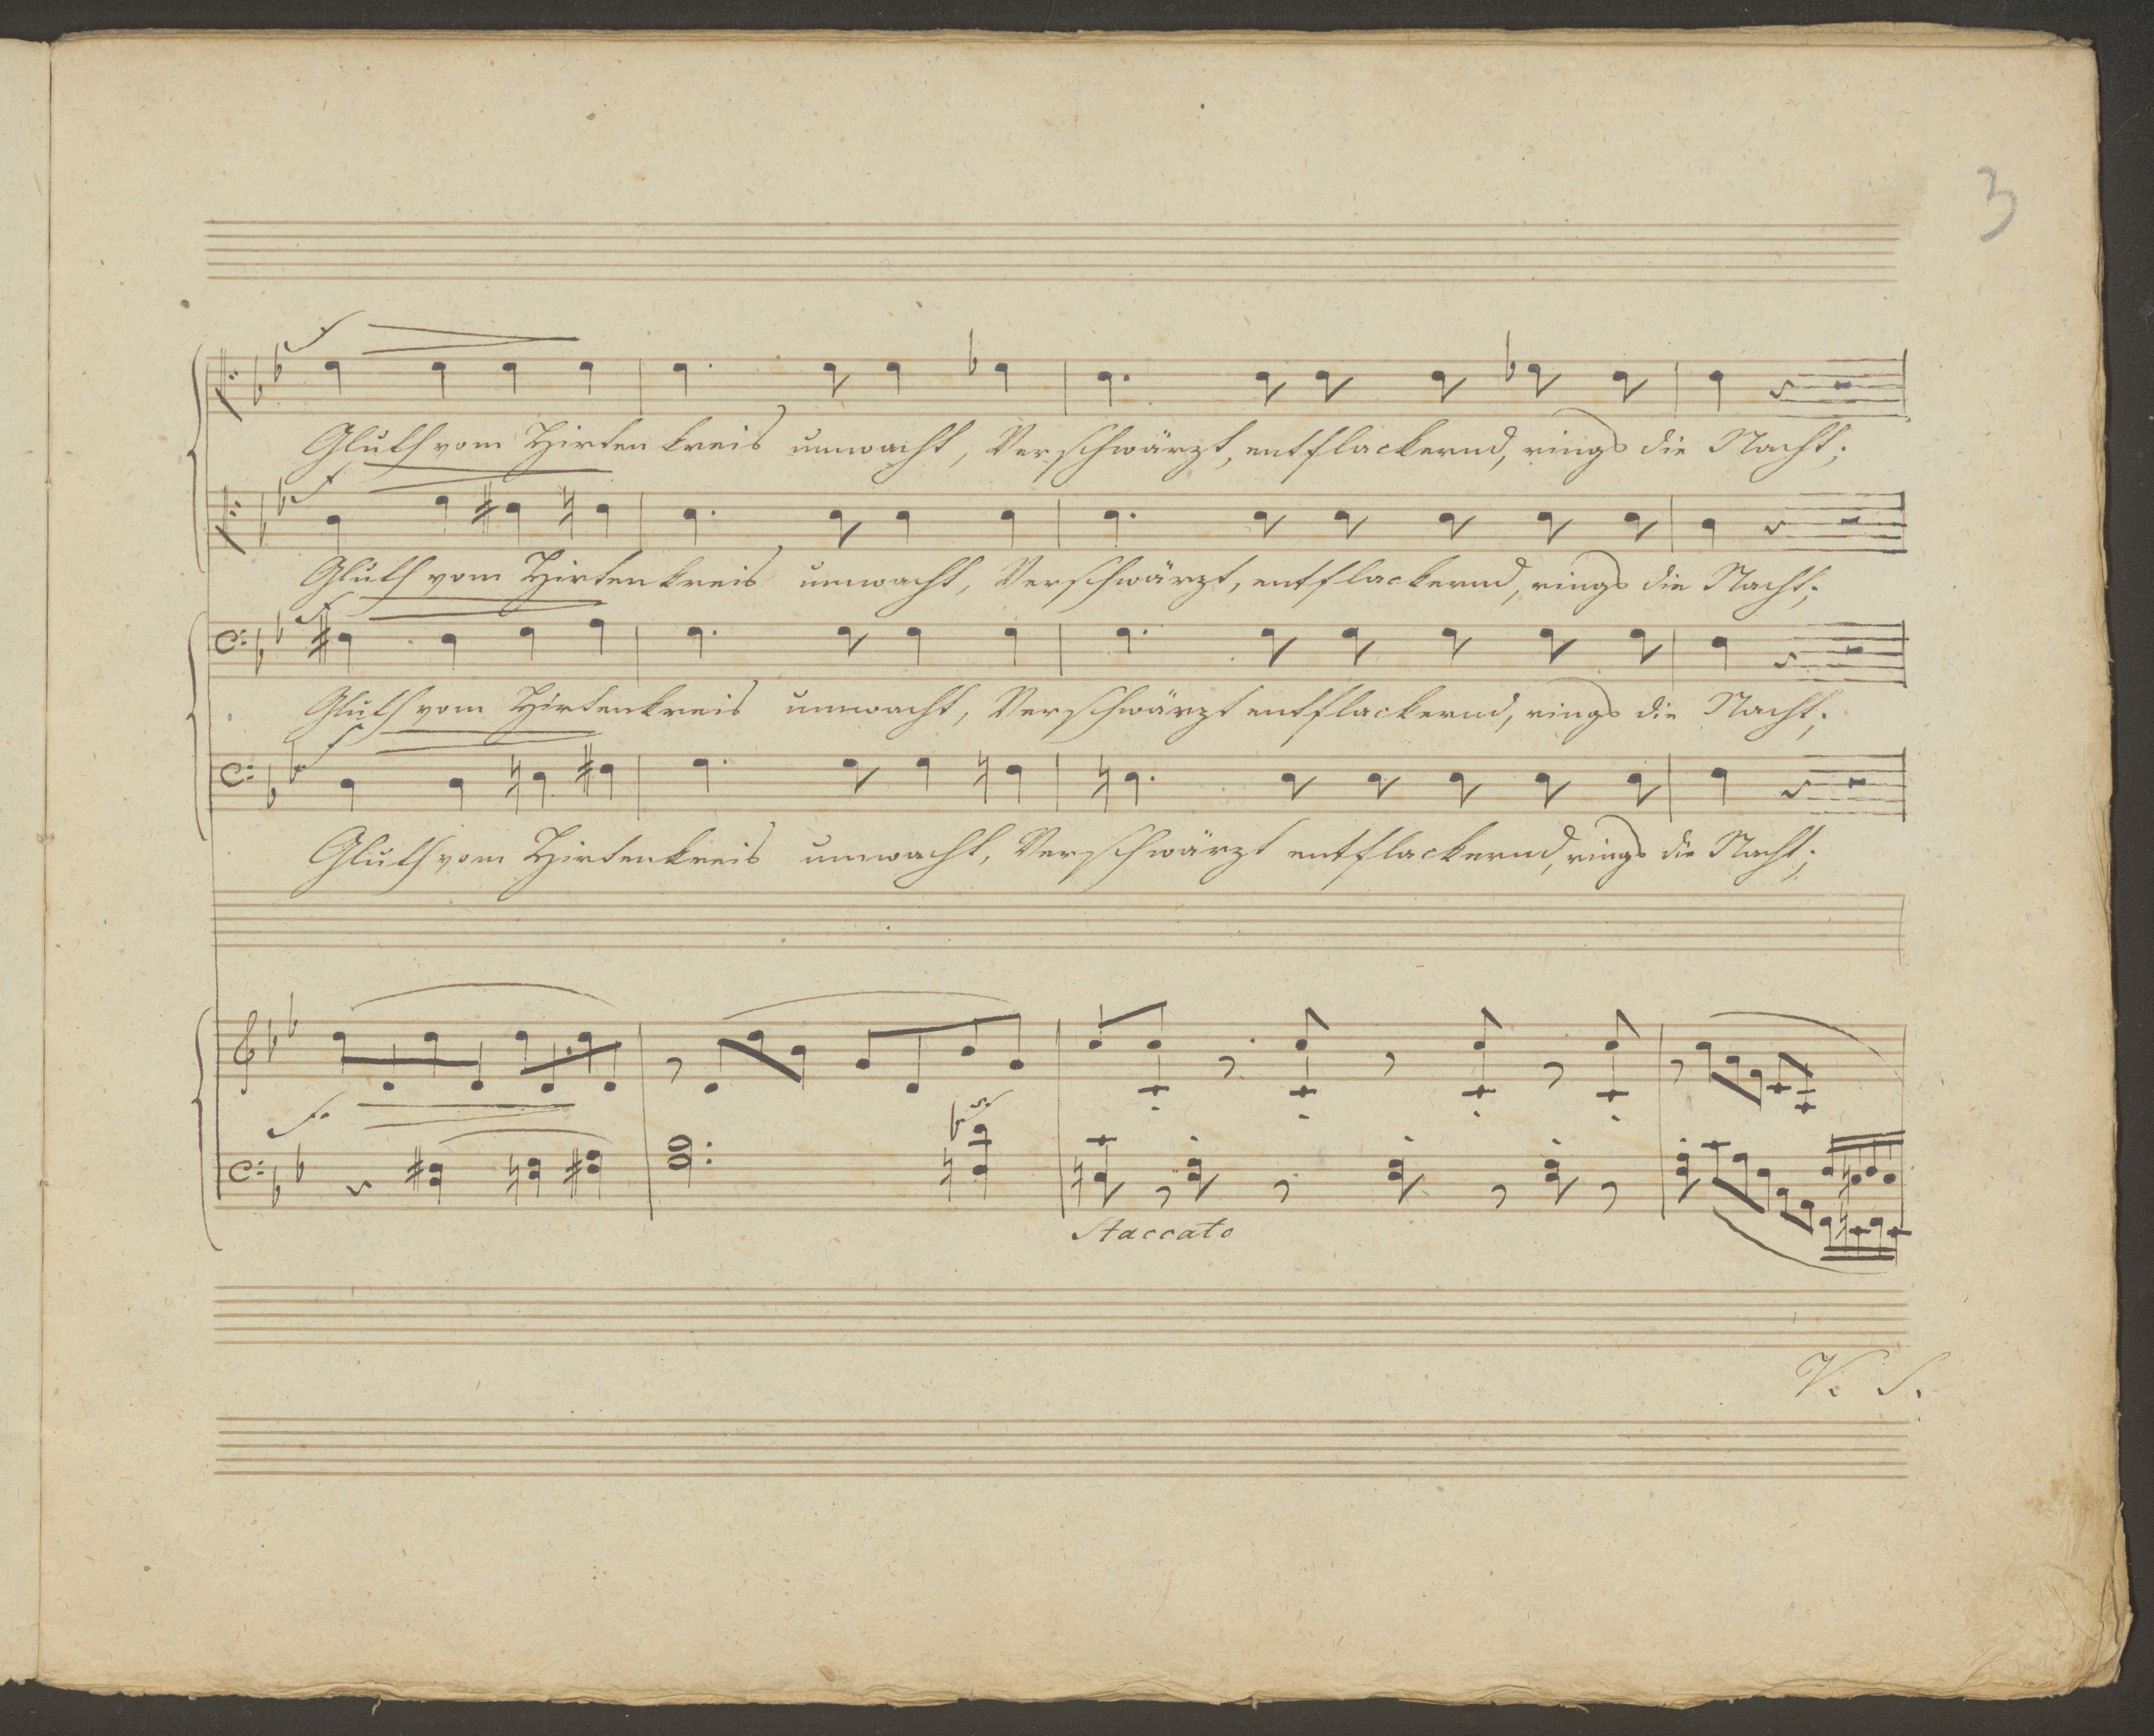 3
f
Gluth vom Hirten kreis umwacht, Verschwärzt, entflackernd, rings die Nacht;
f
Gluth vom Hirten kreis umwacht, Verschwärzt, entflackernd, rings die Nacht;
f
Gluth vom Hirtenkreis umwacht, Verschwärzt entflackernd, rings die Nacht;
f
Gluth vom Hirtenkreis umwacht, Verschwärzt entflackernd, rings die Nacht;
f.
Staccato
V. S.